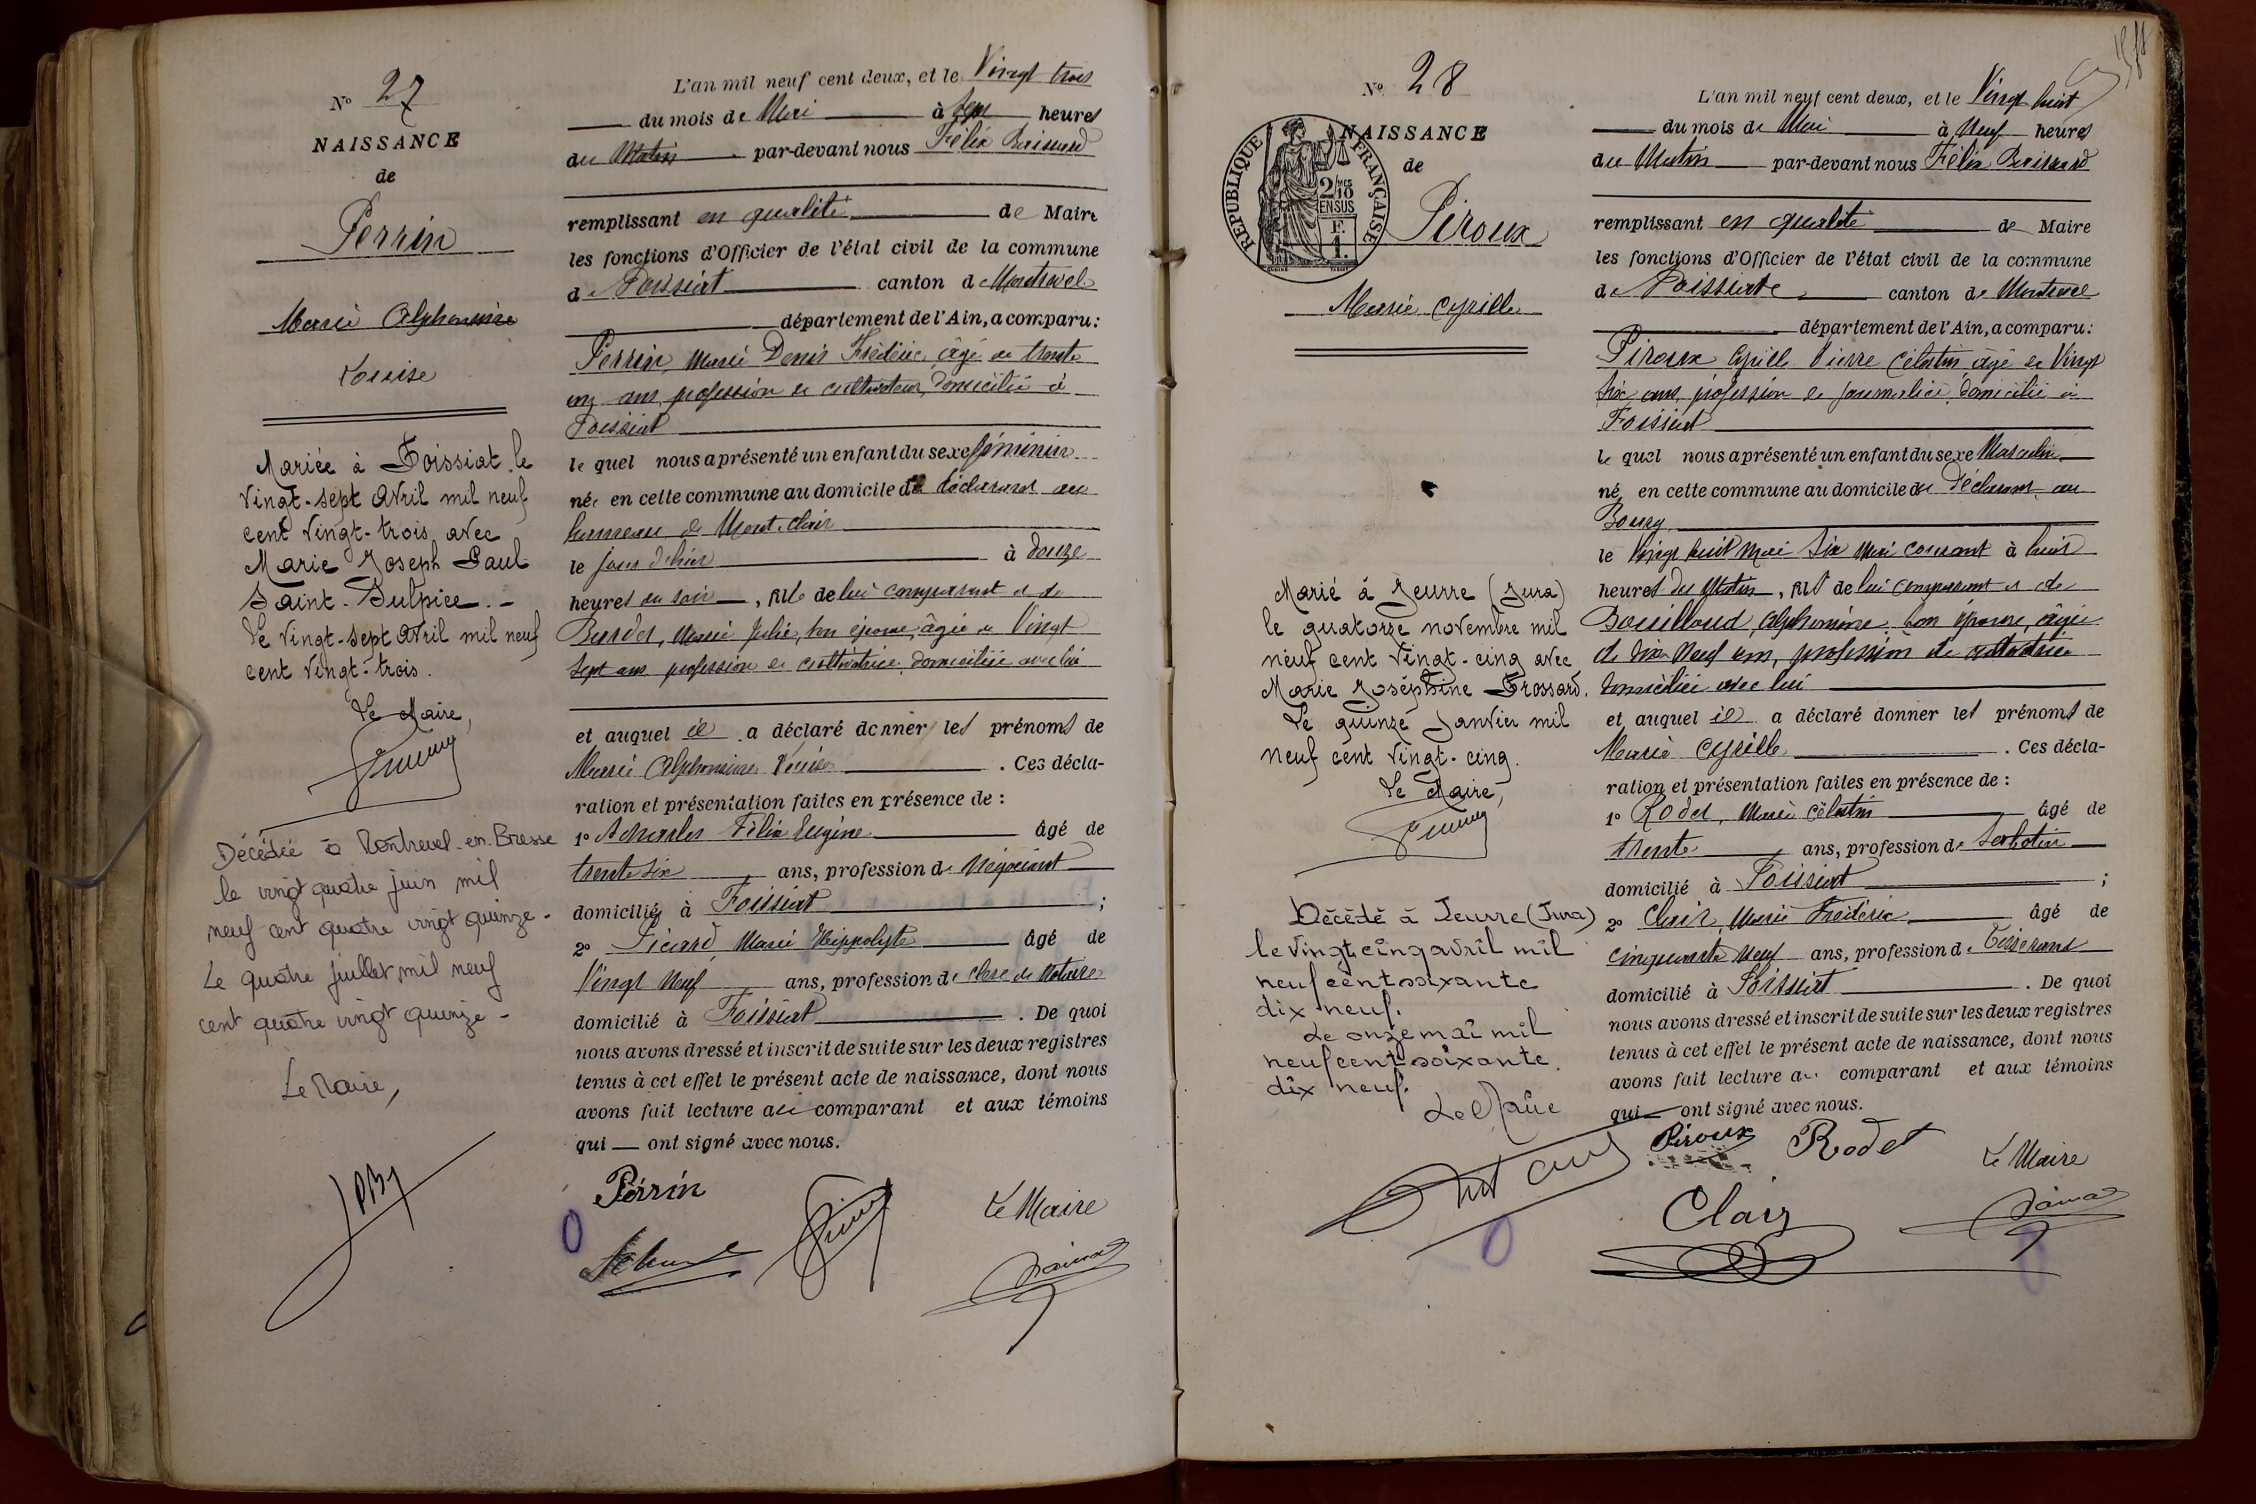 N° 27
NAISSANCE
de
Perrin
Marie Alphonsine
Louise
Mariée à Foissiat le
vingt-sept avril mil neuf
cent vingt-trois avec
Marie Joseph Paul
Saint-Sulpice.-
Le vingt-sept avril mil neuf
cent vingt-trois.
Le Maire,
Décédée à Montrevel-en-Bresse
le vingt quatre juin mil
neuf cent quatre vingt quinze-
Le quatre juillet mil neuf
cent quatre vingt quinze-
Le Maire,
L'an mil neuf cent deux, et le Vingt trois
du mois de Mai à heures
du Matin par-devant nous Félix
remplissant en qualité de Maire
les fonctions d'Officier de l'état civil de la commune
de Foissiat canton de Montrevel
département de l'Ain, a comparu:
Perrin, Marie Denis Frédéric, âgé de trente
cinq ans, profession de cultivateur, domicilié à
Foissiat
le quel nous a présenté un enfant du sexe féminin
née en cette commune au domicile du déclarant au
hameau de Mont-clair
le jour d'hier à douze
heures du soir, fille de lui comparant et de
Burdet, Marie Julie, son épouse, âgée de Vingt
sept ans profession de cultivatrice domiciliée avec lui
et auquel il a déclaré donner les prénoms de
Marie Alphonsine Louise. Ces décla-
ration et présentation faites en présence de:
1° Félix Eugène âgé de
trente six ans, profession de Négociant
domiciliés à Foissiat;
2° Picard, Marie Hippolyte âgé de
Vingt Neuf ans, profession de clerc de Notaire
domicilié à Foissiat. De quoi
nous avons dressé et inscrit de suite sur les deux registres
tenus à cet effet le présent acte de naissance, dont nous
avons fait lecture au comparant et aux témoins
qui ont signé avec nous.
Perrin
Le Maire
N° 28
NAISSANCE
de
REPUBLIQUE FRANÇAISE
2/10mes
EN SUS
F.
1.
Piroux
Marie Cyrille
Marié à Jeurre (Jura)
le quatorze novembre mil
neuf cent vingt-cinq avec
Marie Joséphine Grossard.
Le quinze Janvier mil
neuf cent vingt-cinq.
Le Maire,
Décédé à Jeurre (Jura)
le vingt cinq avril mil
neuf cent soixante
dix neuf.
Le onze mai mil
neuf cent soixante.
dix neuf.
Le Maire
L'an mil neuf cent deux, et le Vingt huit
du mois de Mai à Neuf heures
du Matin par-devant nous Félix
remplissant en qualité de Maire
les fonctions d'Officier de l'état civil de la commune
de Foissiat canton de Montrevel
département de l'Ain, a comparu:
Piroux Cyrille Pierre Célestin âgé de Vingt
six ans, profession de journalier, domicilié à
Foissiat
le quel nous a présenté un enfant du sexe Masculin
né en cette commune au domicile du Déclarant, au
Bourg
le Vingt huit Mai courant à huit
heures du Matin, fils de lui comparant et de
Bouilloud, Alphonsine son épouse, âgée
de dix Neuf ans, profession de cultivatrice
domiciliée avec lui
et auquel il a déclaré donner les prénoms de
Marie Cyrille. Ces décla-
ration et présentation faites en présence de:
1° Rodet, Marie Célestin âgé de
trente ans, profession de Sabotier
domicilié à Foissiat;
2° Clair, Marie Frédéric âgé de
cinquante Neuf ans, profession de Tisserand
domicilié à Foissiat. De quoi
nous avons dressé et inscrit de suite sur les deux registres
tenus à cet effet le présent acte de naissance, dont nous
avons fait lecture au comparant et aux témoins
qui ont signé avec nous.
Piroux Rodet
Le Maire
Clair